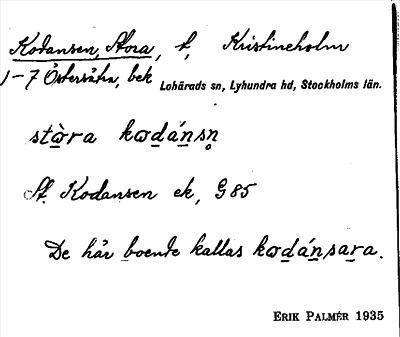 Kodansen, Stora, t, Kristineholm
1–7 Östersätra, bek
Lohärads sn, Lyhundra hd, Stockholms län.
stòra kωdánsn̥
St. Kodansen ek, G 85
De här boende kallas kωdánsara.
ERIK PALMÉR 1935